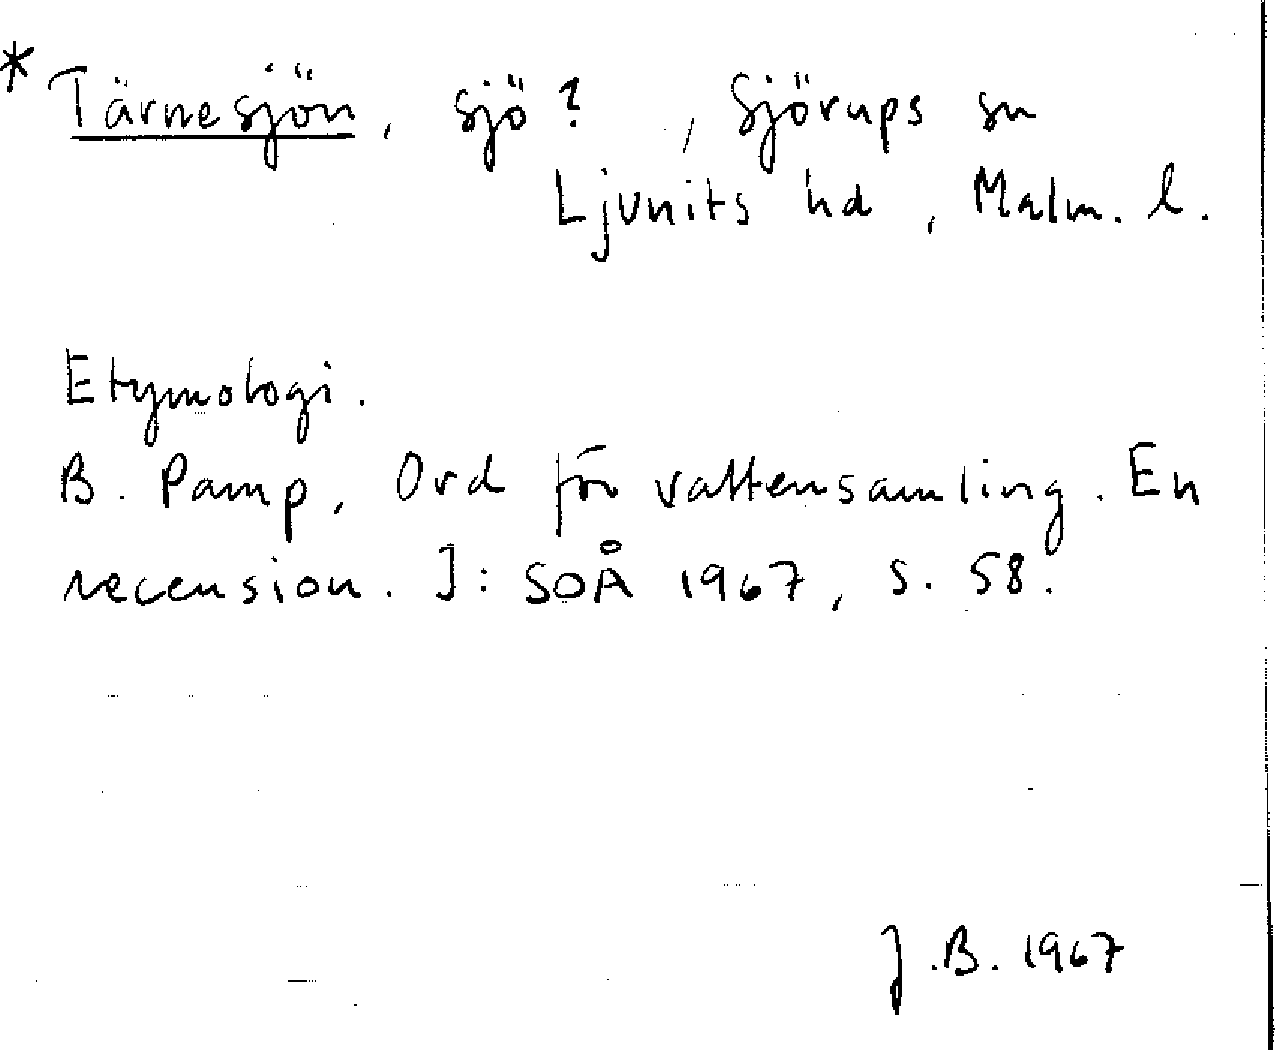 * Tärnesjön, sjö? , Sjörups sn
Ljunits hd, Malm. l.
Etymologi.
B. Pamp, Ord för vattensamling. En
recension. I: SOÅ 1967, s. 58.
J.B. 1967